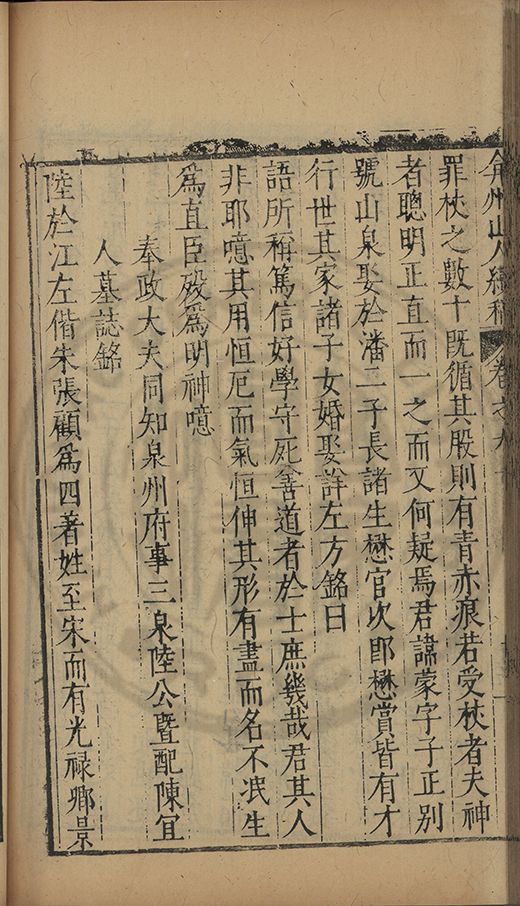 弇州山人續稿 卷之九十
罪杖之數十旣循其股則有青赤痕若受杖者夫神
者聰明正直而一之而又何疑焉君諱蒙字子正別
號山泉娶於潘二子長諸生懋官次郎懋賞皆有才
行世其家諸子女婚娶詳左方銘曰
語所稱篤信好學守死善道者於士庶幾哉君其人
非耶噫其用恒厄而氣恒伸其形有盡而名不泯生
爲直臣殁爲明神噫
奉政大夫同知泉州府事三泉陸公暨配陳宜
人墓誌銘
陸於江左偕朱張顧爲四著姓至宋而有光祿鄉景